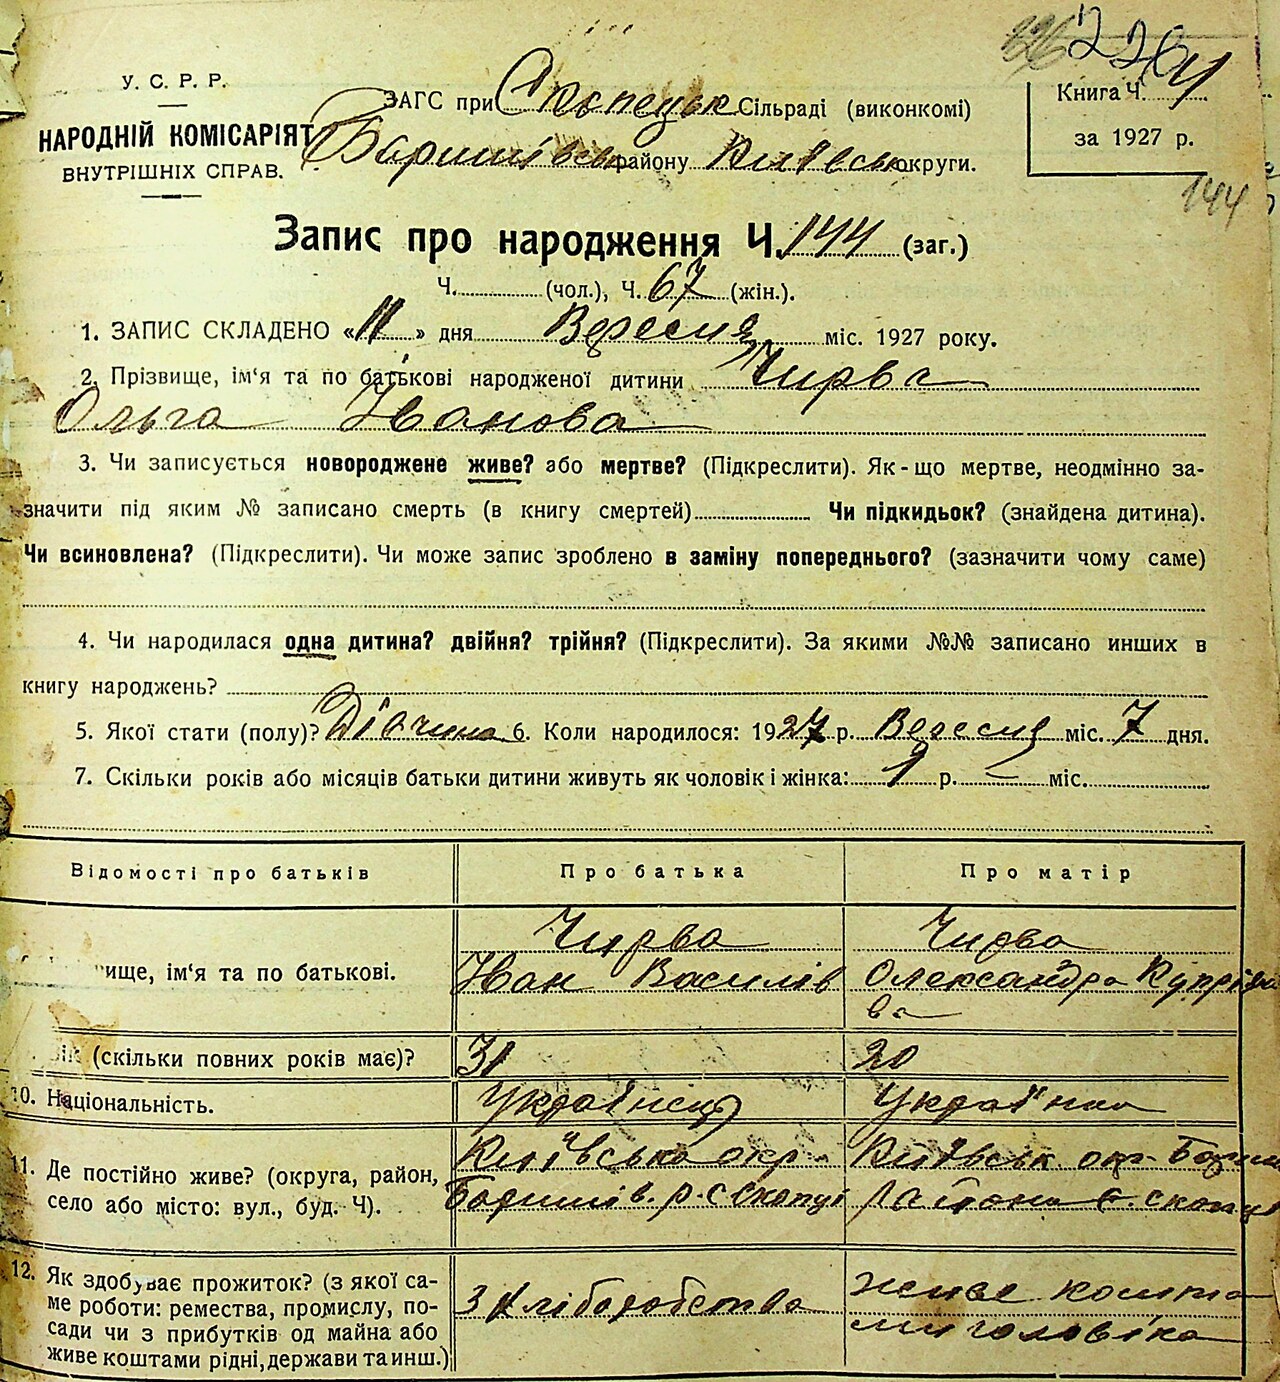 226
У. С. Р. Р.
НАРОДНІЙ КОМІСАРІЯТ
ВНУТРІШНІХ СПРАВ.
ЗАГС при Скопецьк Сільраді (виконкомі)
Баришівськ району Київськ округи.
Книга Ч.
за 1927 р.
144
Запис про народження Ч. 144 (заг.)
Ч. (чол.), Ч. 67 (жін.).
1. ЗАПИС СКЛАДЕНО «11» дня Вересня міс. 1927 року.
2. Прізвище, ім'я та по батькові народженої дитини Чирва
Ольга Іванова
3. Чи записується новороджене живе? або мертве? (Підкреслити). Як-що мертве, неодмінно за-
значити під яким № записано смерть (в книгу смертей) Чи підкидьок? (знайдена дитина).
Чи всиновлена? (Підкреслити). Чи може запис зроблено в заміну попереднього? (зазначити чому саме)
4. Чи народилася одна дитина? двійня? трійня? (Підкреслити). За якими №№ записано инших в
книгу народжень?
5. Якої стати (полу)? Дівчина 6. Коли народилося: 1927 р. Вересня міс. 7 дня.
7. Скільки років або місяців батьки дитини живуть як чоловік і жінка: 1 р. — міс.
Відомості про батьків Про батька Про матір
вище, ім'я та по батькові. Чирва Іван Василів Чирва Олександра Купріяно
ва
(скільки повних років має)? 31 20
10. Національність. Українець Українка
11. Де постійно живе? (округа, район, Київська окр. Київськ. окр. Бориш
село або місто: вул., буд. Ч). Боришів. р. с Скопці району с. Скопці
12. Як здобуває прожиток? (з якої са-
ме роботи: ремества, промислу, по-
сади чи з прибутків од майна або
живе коштами рідні, держави та инш.)
З хліборобства
живе кошта
ми чоловіка